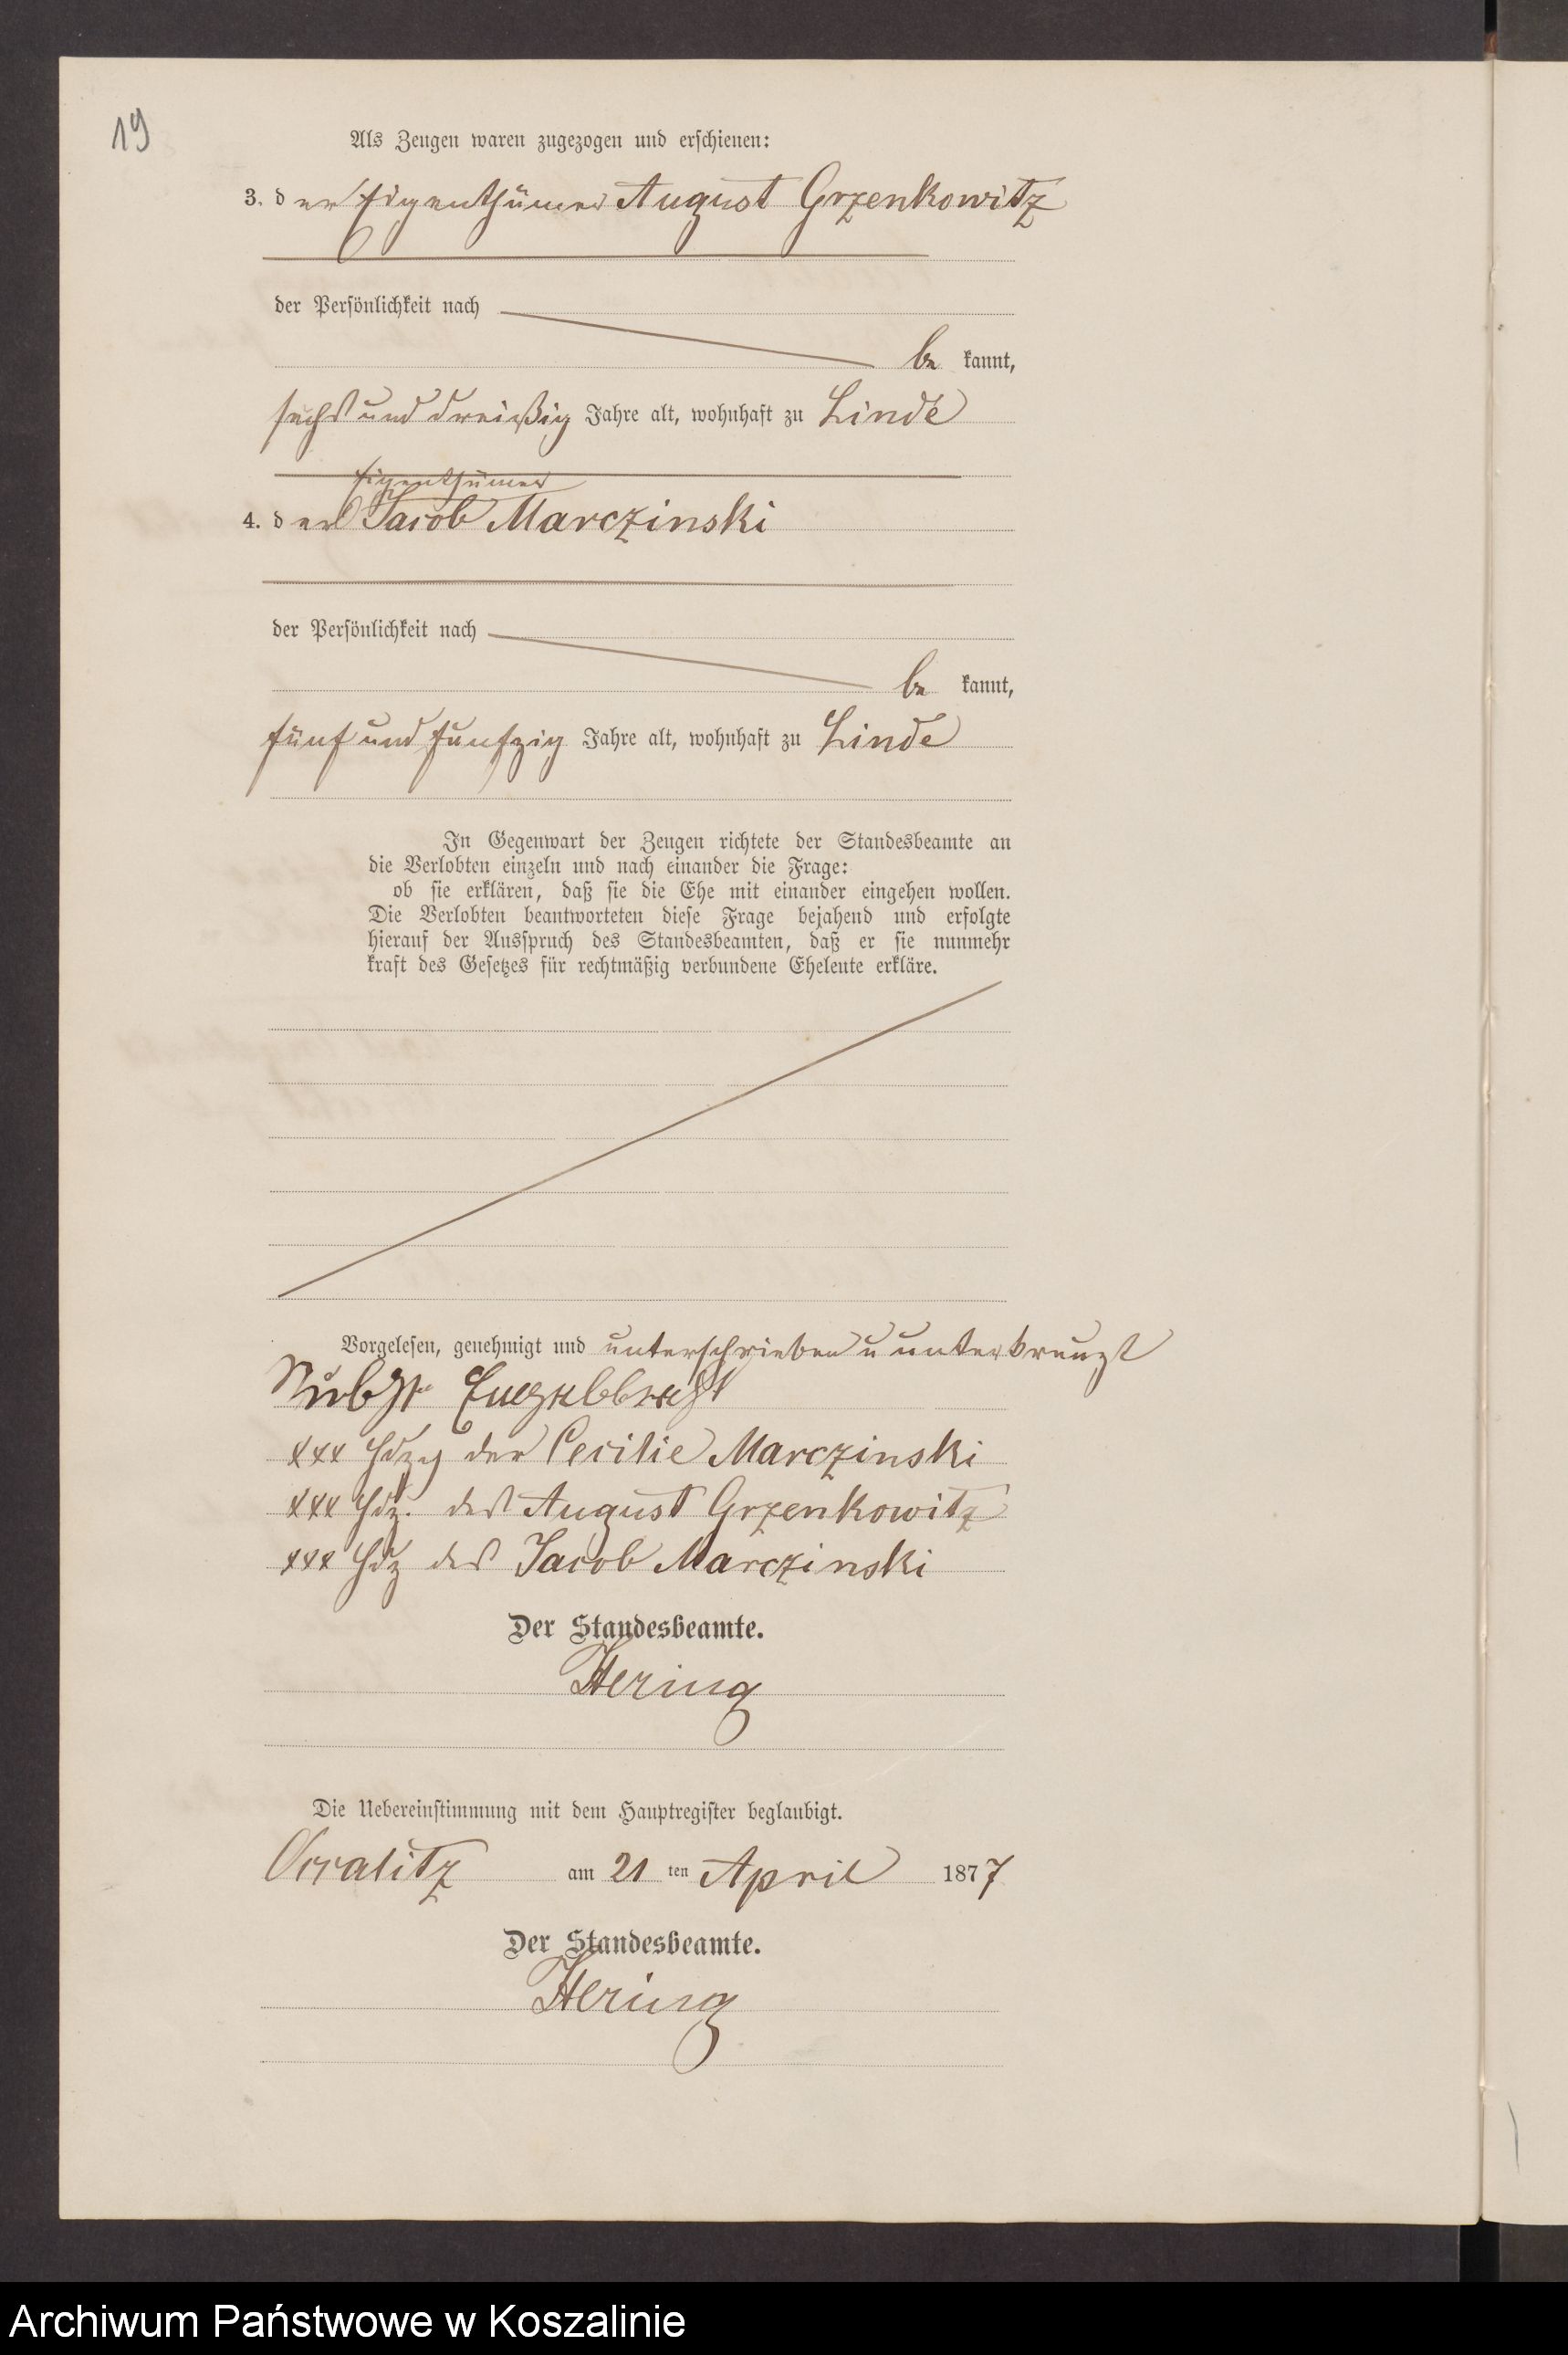 19
Als Zeugen waren zugezogen und erschienen:
3. der Eigenthümer August Grzenkowitz
der Persönlichkeit nach
be kannt,
sechs und dreißig Jahre alt, wohnhaft zu Linde
Eigenthümer
4. der Jacob Marczinski
der Persönlichkeit nach
be kannt,
fünf und funfzig Jahre alt, wohnhaft zu Linde
In Gegenwart der Zeugen richtete der Standesbeamte an
die Verlobten einzeln und nach einander die Frage:
ob sie erklären, daß sie die Ehe mit einander eingehen wollen.
Die Verlobten beantworteten diese Frage bejahend und erfolgte
hierauf der Ausspruch des Standesbeamten, daß er sie nunmehr
kraft des Gesetzes für rechtmäßig verbundene Eheleute erkläre.
Vorgelesen, genehmigt und unterschrieben u unterkreuzt
xxx Hdzg der Cecilie Marczinski
xxx Hdz. des August Grzenkowitz
xxx Hdz des Jacob Marczinski
Der Standesbeamte.
Hering
Die Uebereinstimmung mit dem Hauptregister beglaubigt.
am 21 ten April 1877
Der Standesbeamte.
Hering
Archiwum Państwowe w Koszalinie